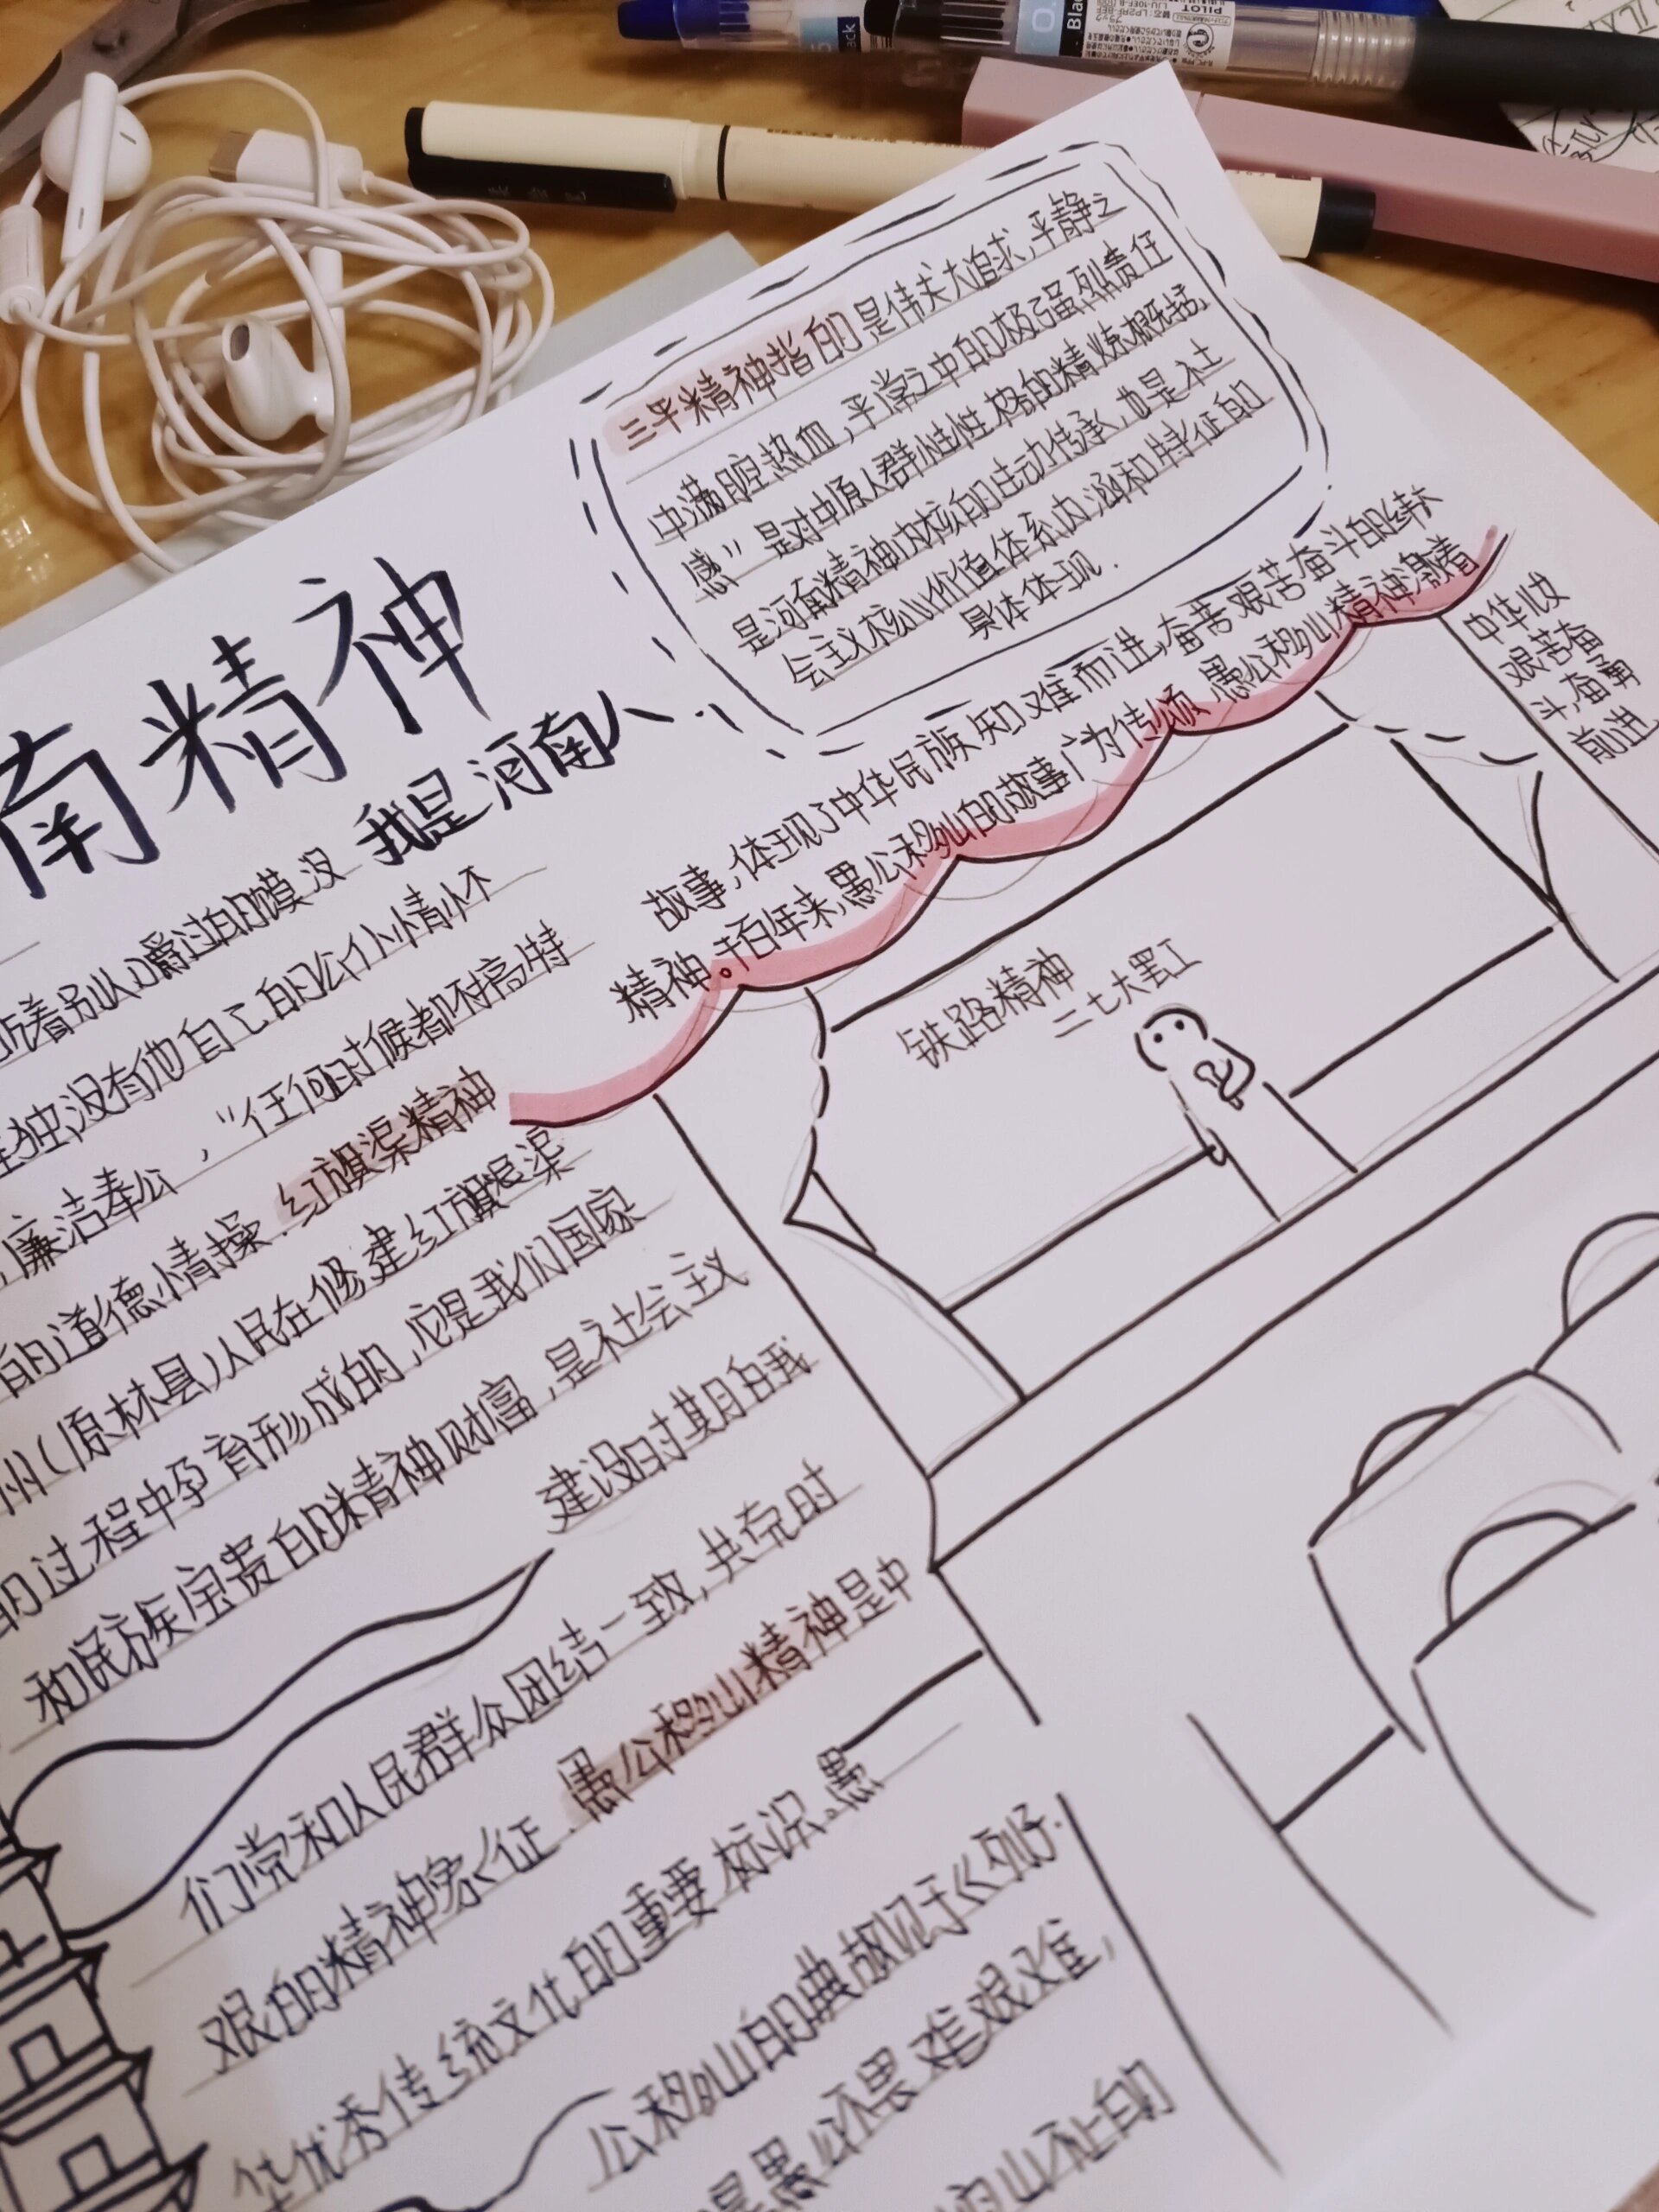 PILOT
三平精神指的是伟大追求,平静之
中满腔热血,平常之中的极强烈责任
感"是对中原人群性性格的精炼概括,
是河南精神内核的生动传承,也是社
会主义核心价值体系内涵和特征的
具体体现.
南精神
我是河南人
故事,体现了中华民族知难而进,奋苦艰苦奋斗的伟大
精神。千百年来,愚公移山的故事广为传颂,愚公移山精神激励着
中华儿女
艰苦奋
斗,奋勇
前进
铁路精神
二七大罢工
着别人嚼过的馍没
没有他自己的公仆情怀
,廉洁奉公,"任何时候都不搞特
的道德情操.红旗渠精神
州(原林县)人民在修建红旗渠
的过程中孕育形成的,它是我们国家
和民族宝贵的精神财富,是社会主义
建设时期自我
们党和人民群众团结一致,共克时
艰的精神象征.愚公移山精神是中
华优秀传统文化的重要标识。愚
公移山的典故见于《列子.
是愚公不畏难艰难,
山不止的